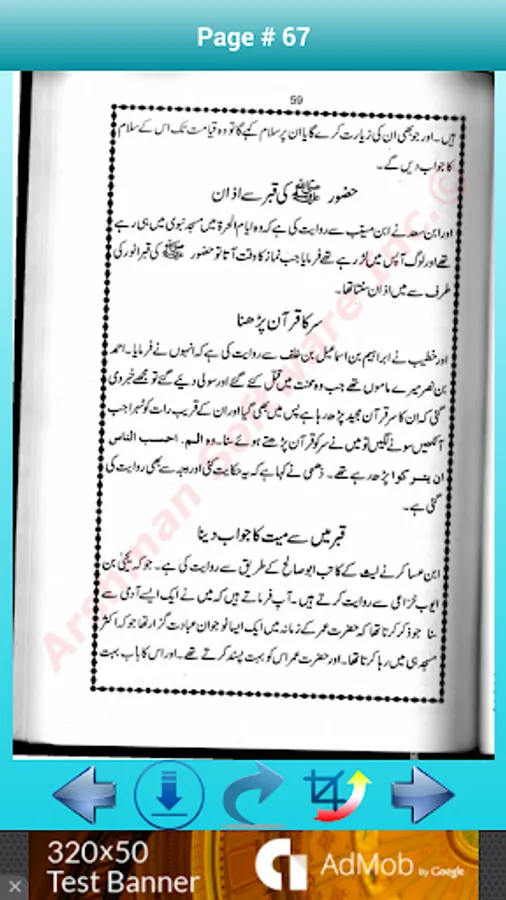 Page # 67
59
ہیں۔ اور جو بھی ان کی زیارت کرے گا یا ان پر سلام کہے گا تو وہ قیامت تک اس کے سلام
کا جواب دیں گے۔
حضور ﷺ کی قبر سے اذان
اور ابن سعد نے ابن مسیب سے روایت کی ہے کہ وہ ایام الحرۃ میں مسجد نبوی میں ہی رہے
تھے اور لوگ آپس میں لڑ رہے تھے فرمایا جب نماز کا وقت آتا تو حضور ﷺ کی قبر انور کی
طرف سے میں اذان سنتا تھا۔
سر کا قرآن پڑھنا
اور خطیب نے ابراہیم بن اسماعیل بن خلف سے روایت کی ہے کہ انہوں نے فرمایا۔ احمد
بن نصر میرے ماموں تھے جب وہ محنت میں قتل کئے گئے اور سولی دیئے گئے تو مجھے خبر دی
گئی کہ ان کا سر قرآن مجید پڑھ رہا ہے پس میں بھی گیا اور ان کے قریب رات کو ٹھہرا جب
آنکھیں سونے لگیں تو میں نے سر کو قرآن پڑھتے ہوئے سنا۔ وہ الم۔ احسب الناس
ان یترکوا پڑھ رہے تھے۔ ذھبی نے کہا ہے کہ یہ حکایت کئی اور وجہ سے بھی روایت کی
گئی ہے۔
قبر میں سے میت کا جواب دینا
ابن عساکر نے لیث کے کاتب ابو صالح کے طریق سے روایت کی ہے۔ جو کہ یحییٰ بن
ایوب خزاعی سے روایت کرتے ہیں۔ آپ فرماتے ہیں کہ میں نے ایک ایسے آدمی سے
سنا جو ذکر کرتا تھا کہ حضرت عمر کے زمانہ میں ایک ایسا نوجوان عبادت گزار تھا جو کہ اکثر
مسجد ہی میں رہا کرتا تھا۔ اور حضرت عمر اس کو بہت پسند کرتے تھے۔ اور اس کا باپ بہت
Arshman Software Inc.©
320×50
Test Banner
AdMob by Google